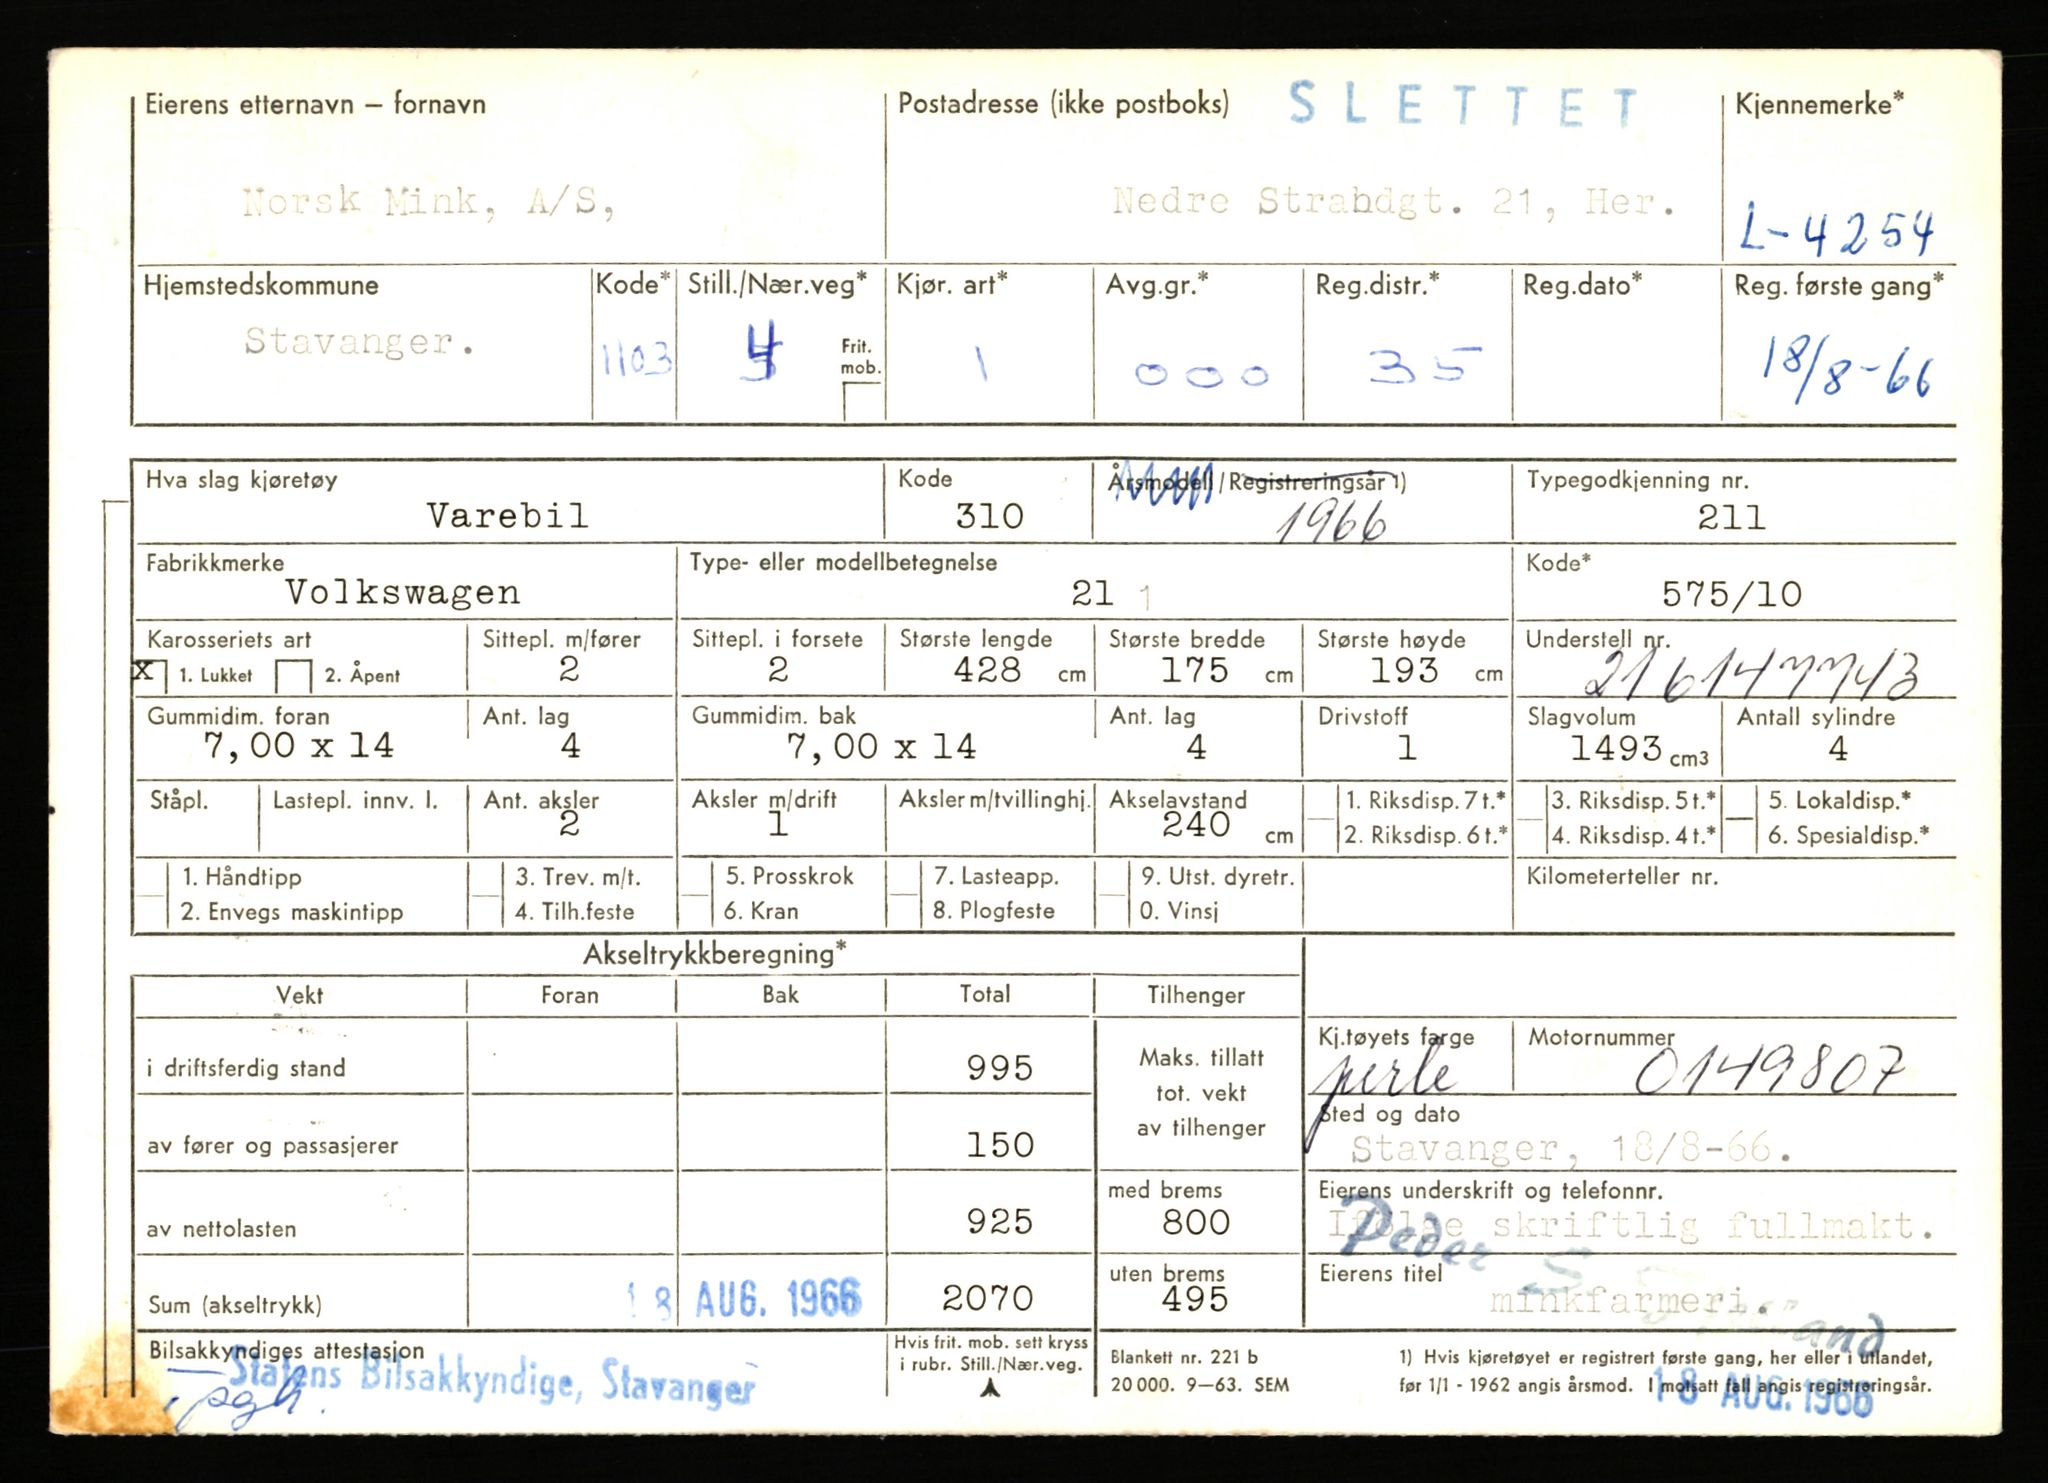 Eierens etternavn – fornavn Postadresse (ikke postboks) SLETTET Kjennemerke*
Norsk Mink, A/S, Nedre Strandgt. 21, Her. L-4254
Hjemstedskommune Kode* Still./Nær.veg* Kjør. art* Avg.gr.* Reg.distr.* Reg.dato* Reg. første gang*
Stavanger. 1103 4 Frit. mob. 1 000 35 18/8-66
Hva slag kjøretøy Kode Årsmodell/Registreringsår 1) Typegodkjenning nr.
Varebil 310 1966 211
Fabrikkmerke Type- eller modellbetegnelse Kode*
Volkswagen 21 1 575/10
Karosseriets art Sittepl. m/fører Sittepl. i forsete Største lengde Største bredde Største høyde Understell nr.
x 1. Lukket 2. Åpent 2 2 428 cm 175 cm 193 cm 216147743
Gummidim. foran Ant. lag Gummidim. bak Ant. lag Drivstoff Slagvolum Antall sylindre
7,00 x 14 4 7,00 x 14 4 1 1493 cm3 4
Ståpl. Lastepl. innv. l. Ant. aksler Aksler m/drift Aksler m/tvillinghj. Akselavstand 1. Riksdisp. 7 t.* 3. Riksdisp. 5 t.* 5. Lokaldisp.*
2 1 240 cm 2. Riksdisp. 6 t.* 4. Riksdisp. 4 t.* 6. Spesialdisp.*
1. Håndtipp 3. Trev. m/t. 5. Prosskrok 7. Lasteapp. 9. Utst. dyretr. Kilometerteller nr.
2. Envegs maskintipp 4. Tilh.feste 6. Kran 8. Plogfeste 0. Vinsj
Akseltrykkberegning*
Vekt Foran Bak Total Tilhenger
i driftsferdig stand 995 Maks. tillatt tot. vekt av tilhenger Kj.tøyets farge Motornummer
perle 0149807
Sted og dato
av fører og passasjerer 150 Stavanger, 18/8-66.
med brems Eierens underskrift og telefonnr.
av nettolasten 925 800 Ifølge skriftlig fullmakt.
Peder S
uten brems Eierens titel
Sum (akseltrykk) 18 AUG. 1966 2070 495 minkfarmeri.
Bilsakkyndiges attestasjon Hvis frit. mob. sett kryss i rubr. Still./Nær.veg. Blankett nr. 221 b 1) Hvis kjøretøyet er registrert første gang, her eller i utlandet,
20 000. 9–63. SEM før 1/1 - 1962 angis årsmod. I motsatt fall angis registreringsår.
Statens Bilsakkyndige, Stavanger 18 AUG. 1966